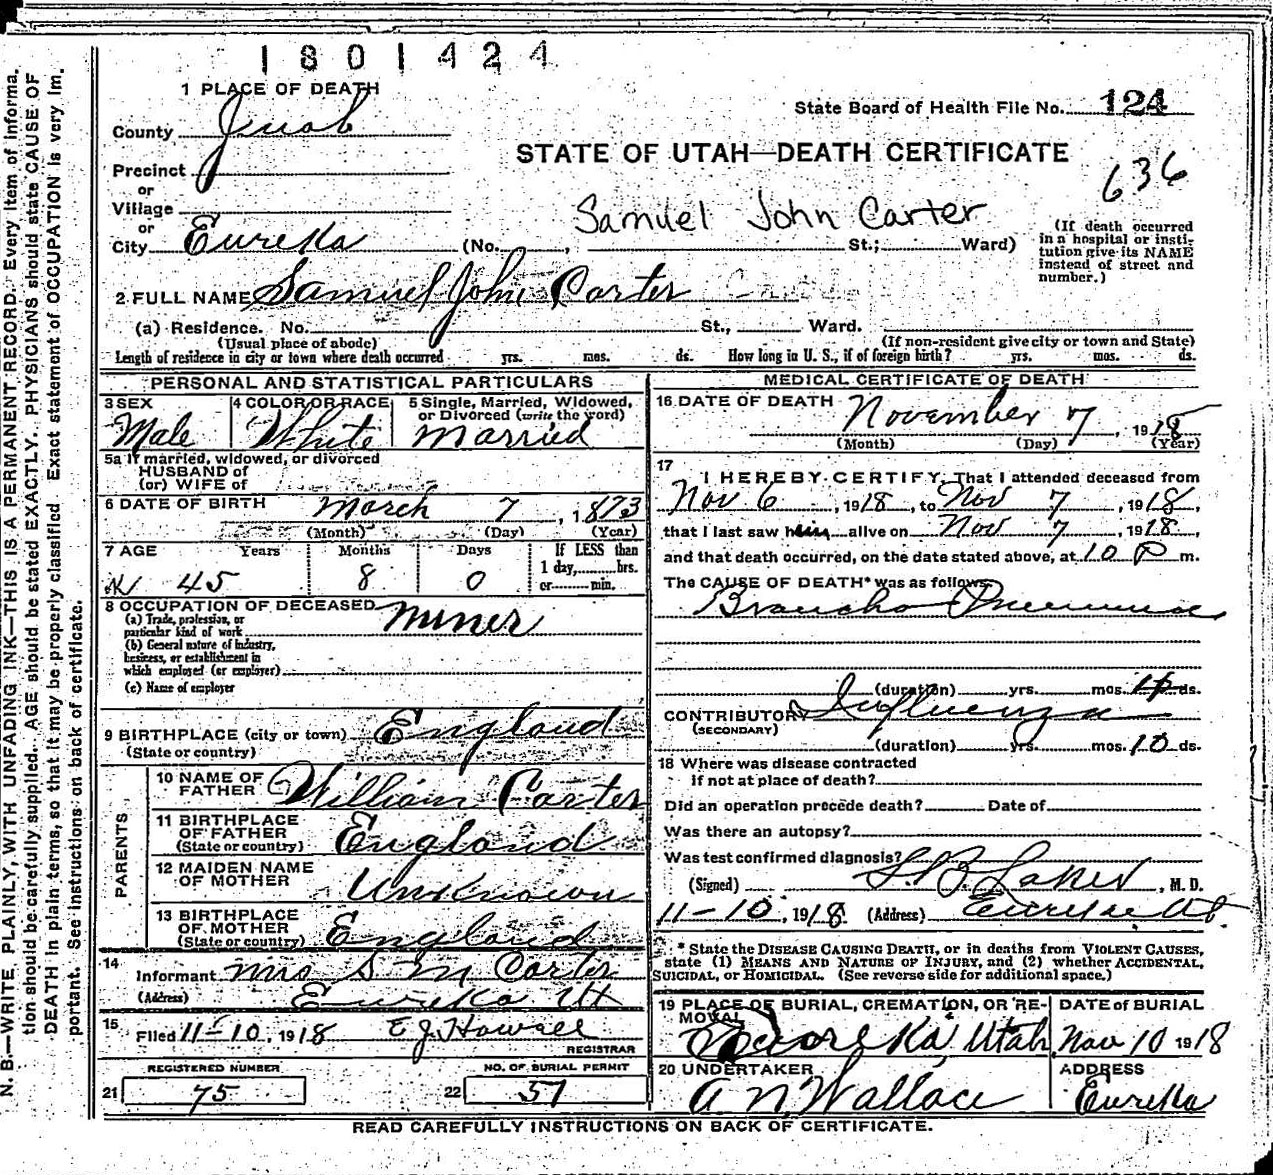 1801424
1 PLACE OF DEATH
State Board of Health File No. 124
County Juab
STATE OF UTAH—DEATH CERTIFICATE
636
Precinct
or
Village
or
Samuel John Carter
City Eureka (No. , St.; Ward)
(If death occurred
in a hospital or insti-
tution give its NAME
instead of street and
number.)
2. FULL NAME Samuel John Carter
(a) Residence. No. St., Ward.
(Usual place of abode) (If non-resident give city or town and State)
Length of residence in city or town where death occurred yrs. mos. ds. How long in U. S., if of foreign birth? yrs. mos. ds.
PERSONAL AND STATISTICAL PARTICULARS
3 SEX 4 COLOR OR RACE 5 Single, Married, Widowed,
or Divorced (write the word)
Male White Married
5a If married, widowed, or divorced
HUSBAND of
(or) WIFE of
6 DATE OF BIRTH March 7, 1873
(Month) (Day) (Year)
7 AGE Years Months Days If LESS than
1 day, hrs.
or min.
45 8 0
8 OCCUPATION OF DECEASED
(a) Trade, profession, or
particular kind of work Miner
(b) General nature of industry,
business, or establishment in
which employed (or employer)
(c) Name of employer
9 BIRTHPLACE (city or town) England
(State or country)
PARENTS
10 NAME OF
FATHER William Carter
11 BIRTHPLACE
OF FATHER
(State or country) England
12 MAIDEN NAME
OF MOTHER Unknown
13 BIRTHPLACE
OF MOTHER
(State or country) England
14
Informant Mrs S M Carter
(Address) Eureka Ut
15
Filed 11-10, 1918 E J Howell
REGISTRAR
REGISTERED NUMBER NO. OF BURIAL PERMIT
21 75 22 57
MEDICAL CERTIFICATE OF DEATH
16 DATE OF DEATH November 7, 1918
(Month) (Day) (Year)
17
I HEREBY CERTIFY, That I attended deceased from
Nov 6, 1918, to Nov 7, 1918,
that I last saw him alive on Nov 7, 1918,
and that death occurred, on the date stated above, at 10 P m.
The CAUSE OF DEATH* was as follows:
Broncho Pneumonia
(duration) yrs. mos. ds.
CONTRIBUTORY Influenza
(SECONDARY)
(duration) yrs. mos. 10 ds.
18 Where was disease contracted
if not at place of death?
Did an operation precede death? Date of
Was there an autopsy?
Was test confirmed diagnosis?
(Signed) , M. D.
11-10, 1918 (Address) Eureka Ut
* State the DISEASE CAUSING DEATH, or in deaths from VIOLENT CAUSES,
state (1) MEANS AND NATURE OF INJURY, and (2) whether ACCIDENTAL,
SUICIDAL, or HOMICIDAL. (See reverse side for additional space.)
19 PLACE OF BURIAL, CREMATION, OR RE-
MOVAL DATE of BURIAL
Eureka Utah Nov 10 1918
20 UNDERTAKER ADDRESS
A. N. Wallace Eureka
READ CAREFULLY INSTRUCTIONS ON BACK OF CERTIFICATE.
N. B.—WRITE PLAINLY, WITH UNFADING INK—THIS IS A PERMANENT RECORD. Every item of informa-
tion should be carefully supplied. AGE should be stated EXACTLY. PHYSICIANS should state CAUSE OF
DEATH in plain terms, so that it may be properly classified. Exact statement of OCCUPATION is very im-
portant. See instructions on back of certificate.